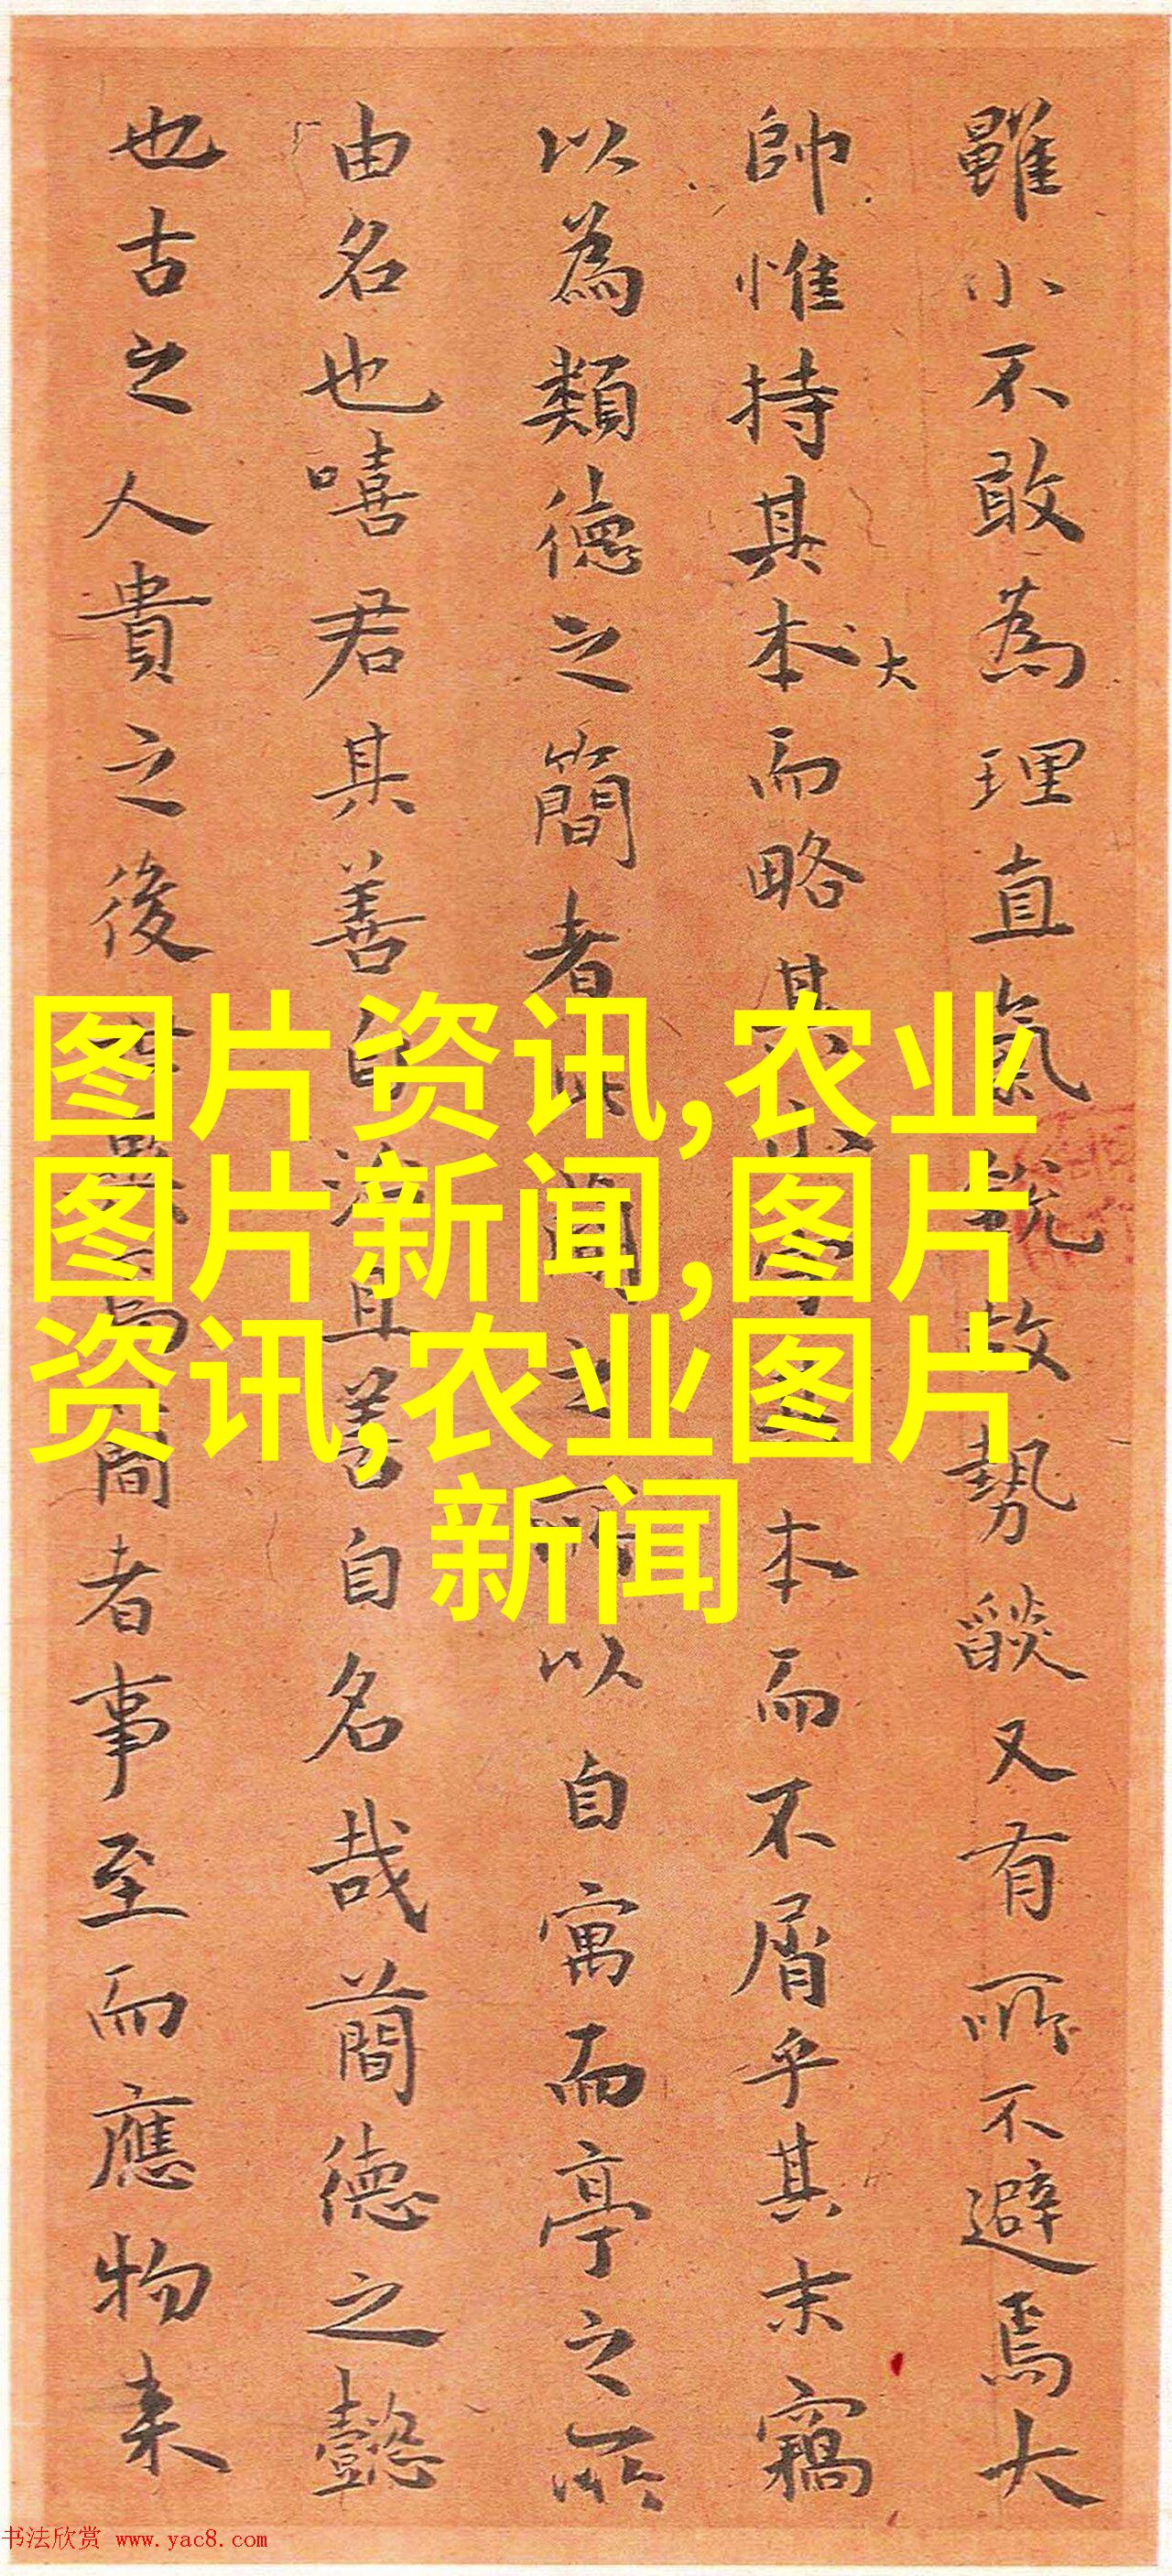 雖小不敢為理直氣銳故勢燄又有所不避焉大
帥惟持其本而略其
大
本而不屑乎其末竊
以為類德之簡者
以自寓而亭之所
由名也嘻君其善
且善自名哉蕳德之懿
也古之人貴之後
簡者事至而應物来
图片资讯,农业
图片新闻,图片
资讯,农业图片
新闻
书法欣赏 www.yac8.com